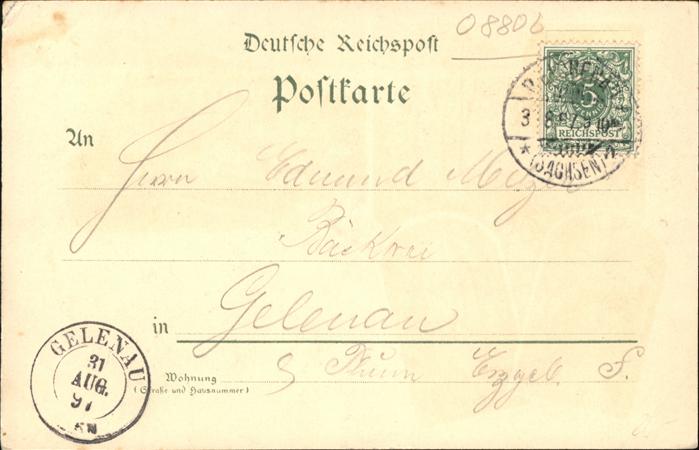 08806
Deutsche Reichspost
Postkarte
5
REICHSPOST
(SACHSEN)
An
Herrn Edmund
Bäckerei
in Gelenau
Thum Erzgeb. S.
Wohnung
(Straße und Hausnummer)
GELENAU
31
AUG.
97